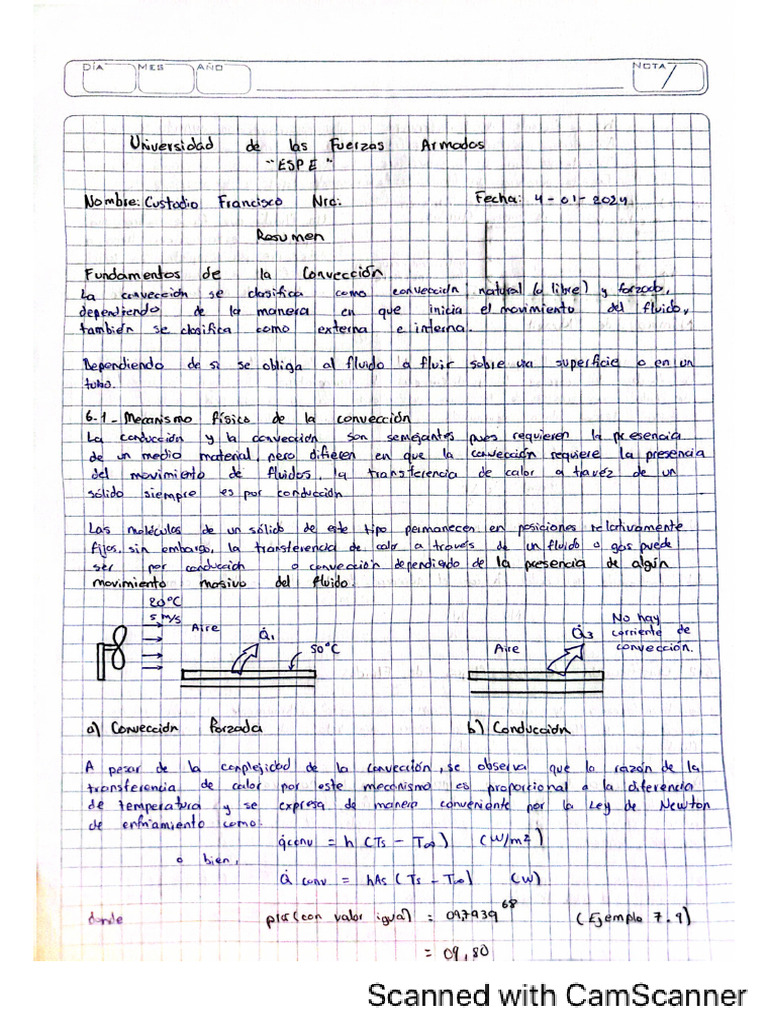 DÍA MES AÑO NOTA
Universidad de las Fuerzas Armadas
"ESPE"
Nombre: Custodio Francisco Nrc: Fecha: 4-01-2024
Resumen
Fundamentos de la Convección
La convección se clasifica como convección natural (o libre) y forzada,
dependiendo de la manera en que inicia el movimiento del fluido,
también se clasifica como externa e interna.
Dependiendo de si se obliga al fluido a fluir sobre una superficie o en un
tubo.
6.1- Mecanismo físico de la convección
La conducción y la convección son semejantes pues requieren la presencia
de un medio material, pero difieren en que la convección requiere la presencia
del movimiento de fluidos, la transferencia de calor a travéz de un
sólido siempre es por conducción
Las moléculas de un sólido de este tipo permanecen en posiciones relativamente
fijas, sin embargo, la transferencia de calor a través de un fluido o gas puede
ser por conducción o convección dependiendo de la presencia de algún
movimiento masivo del fluido.
20°C
5 m/s
Aire
Q̇1
50°C
Aire
Q̇3
No hay
corriente de
convección.
a) Convección forzada b) Conducción
A pesar de la complejidad de la convección, se observa que la razón de la
transferencia de calor por este mecanismo es proporcional a la diferencia
de temperatura y se expresa de manera conveniente por la Ley de Newton
de enfriamiento como:
q̇conv = h (Ts - T∞) (W/m²)
o bien,
Q̇ conv = hAs (Ts - T∞) (W)
donde (con valor igual) = (Ejemplo 7.9)
= 09,80
Scanned with CamScanner